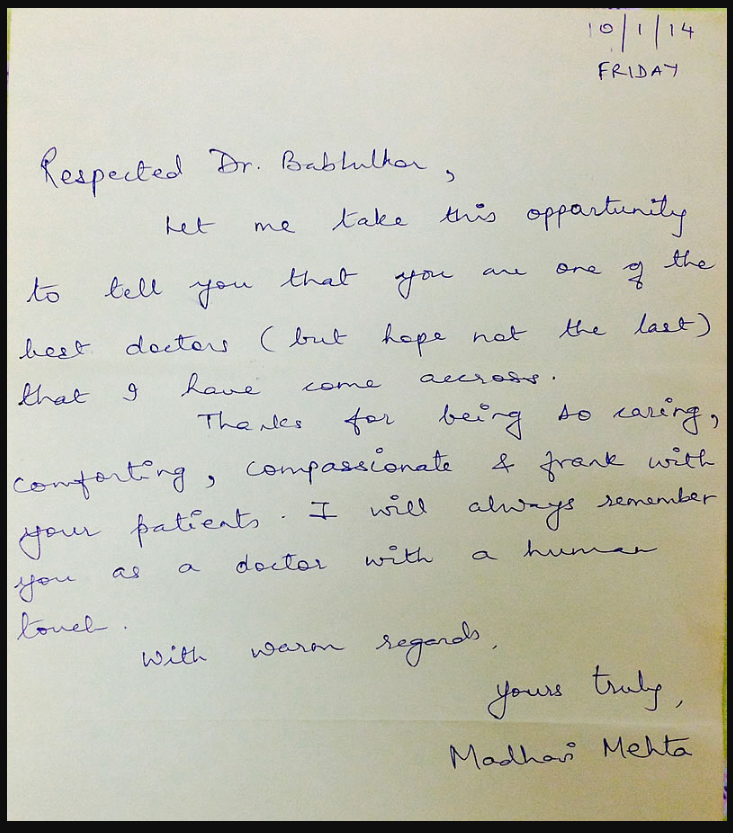 10/1/14
FRIDAY
Respected Dr. Babhulkar,
Let me take this opportunity
to tell you that you are one of the
best doctors (but hope not the last)
that I have come accross.
Thanks for being so caring,
comforting, compassionate & frank with
your patients. I will always remember
you as a doctor with a human
touch.
With warm regards,
Yours truly,
Madhavi Mehta